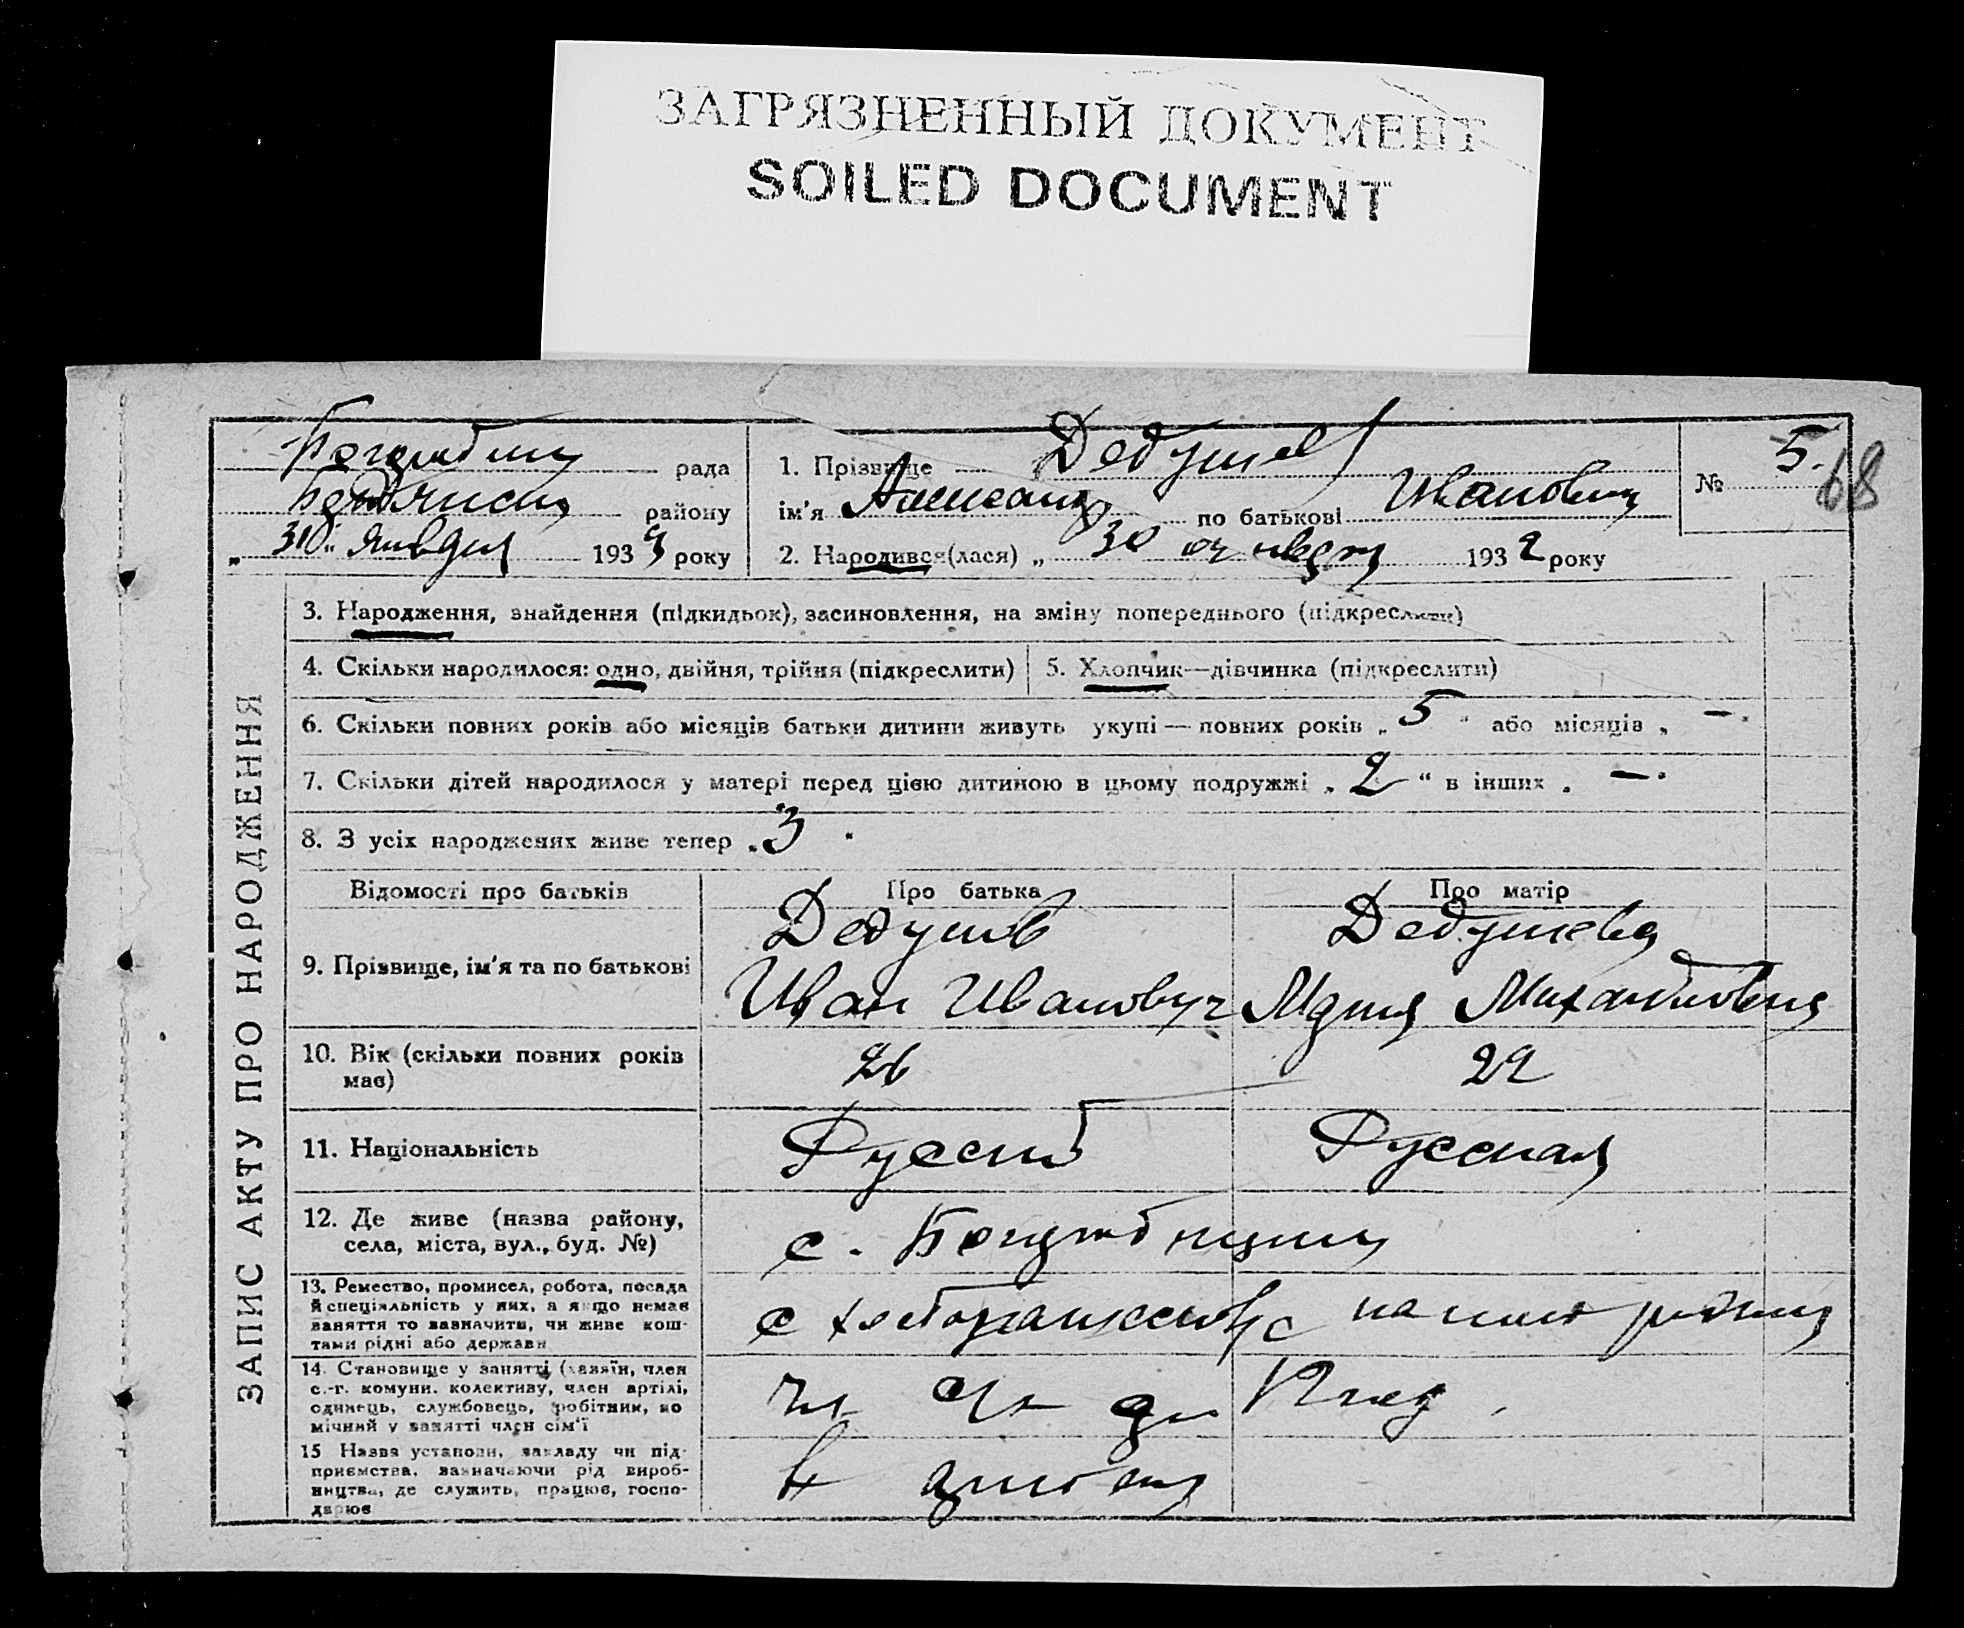 ЗАГРЯЗНЕННЫЙ ДОКУМЕНТ
SOILED DOCUMENT
рада
району
января 193 року
1. Прізвище Дедушев
ім'я Александр по батькові Иванович
2. Народився(лася) „ 30 января 1932 року
№ 5.
68
ЗАПИС АКТУ ПРО НАРОДЖЕННЯ
3. Народження, знайдення (підкидьок), засиновлення, на зміну попереднього (підкреслити)
4. Скільки народилося: одно, двійня, трійня (підкреслити)
5. Хлопчик—дівчинка (підкреслити)
6. Скільки повних років або місяців батьки дитини живуть укупі — повних років „ 5 " або місяців „ — "
7. Скільки дітей народилося у матері перед цією дитиною в цьому подружжі „ 2 " в інших „ — "
8. З усіх народжених живе тепер „ 3 "
Відомості про батьків
Про батька
Про матір
9. Прізвище, ім'я та по батькові
Дедушев
Иван Иванович
Дедушева
Мария Михайловна
10. Вік (скільки повних років
має)
26
22
11. Національність
Русский
Русская
12. Де живе (назва району,
села, міста, вул., буд. №)
с.
13. Ремество, промисел, робота, посада
й спеціяльність у них, а якщо немає
заняття то зазначити, чи живе кош-
тами рідні або держави
14. Становище у занятті (хазяїн, член
с.-г. комуни, колективу, член артілі,
одинець, службовець, робітник, по
мічний у занятті член сім'ї
15 Назва установи, закладу чи під-
приємства, зазначаючи рід вироб-
ництва, де служить, працює, госпо-
дарює